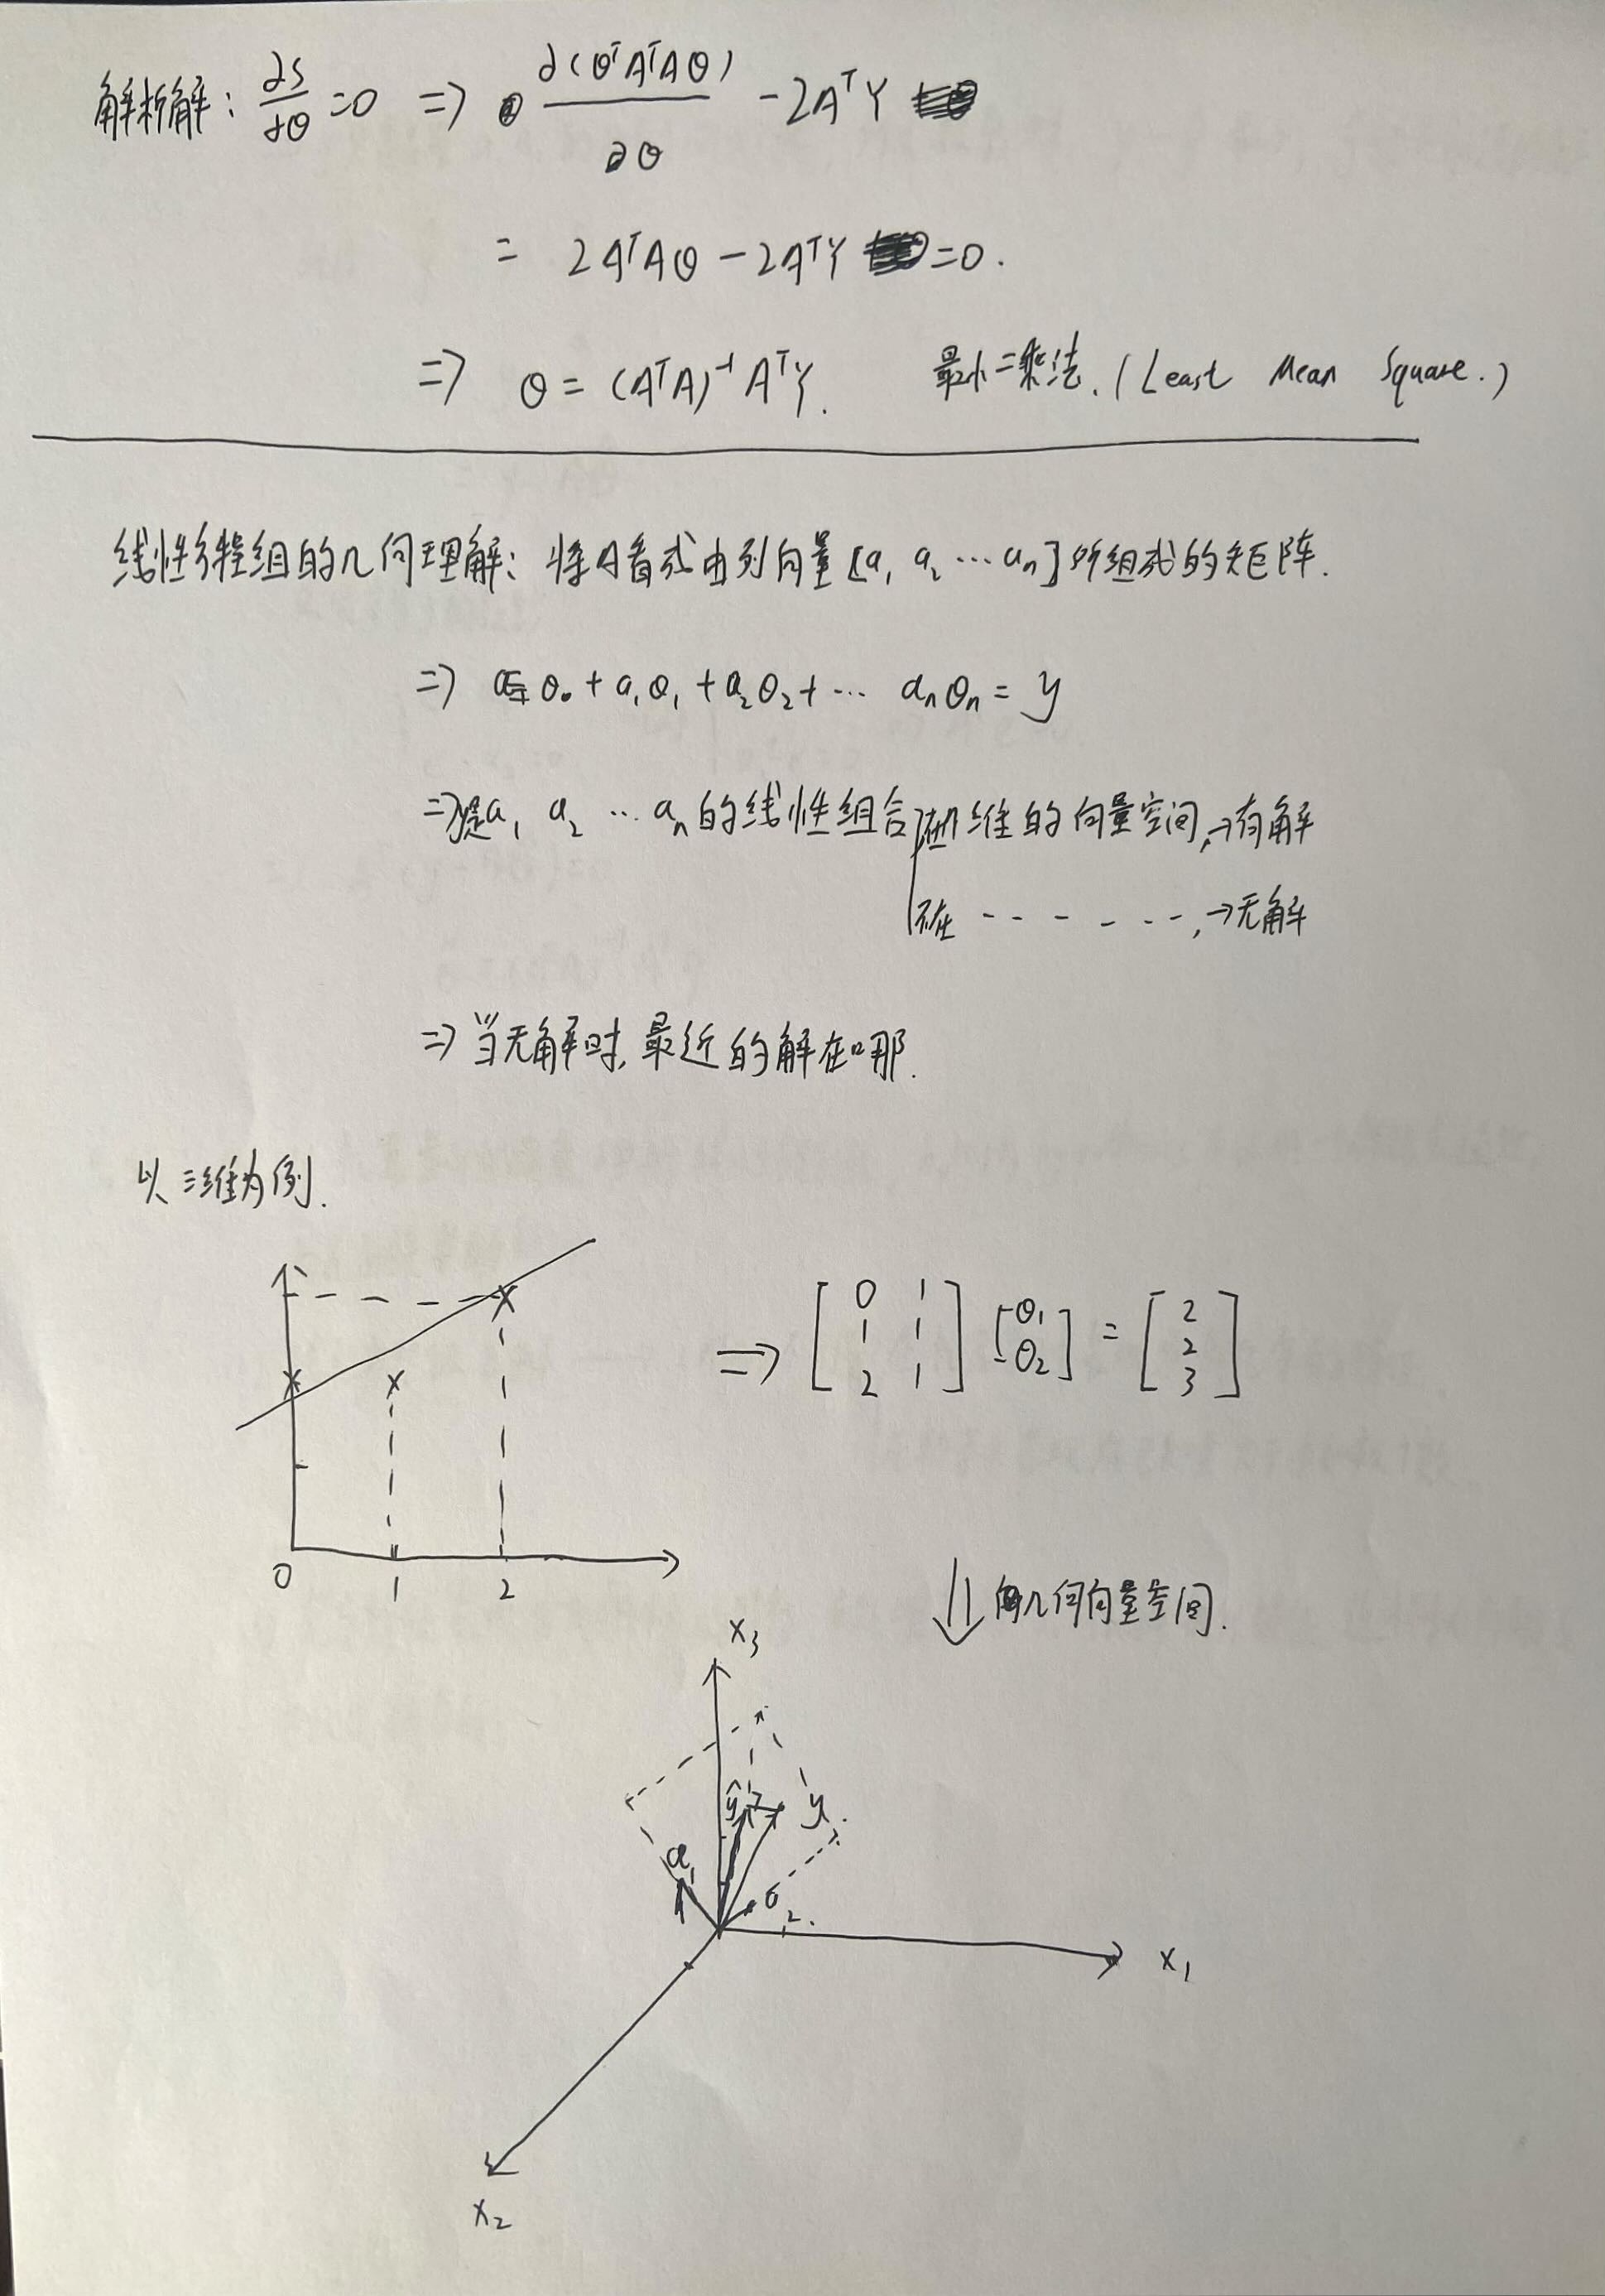 解析解: ∂S/∂θ = 0 ⇒ ∂(θᵀAᵀAθ)/∂θ - 2AᵀY
= 2AᵀAθ - 2AᵀY = 0.
⇒ θ = (AᵀA)⁻¹AᵀY. 最小二乘法. (Least Mean Square.)
线性方程组的几何理解: 将A看成由列向量[a₁ a₂ … aₙ]所组成的矩阵.
⇒ θ₀ + a₁θ₁ + a₂θ₂ + … aₙθₙ = y
⇒ y是a₁ a₂ … aₙ的线性组合 维的向量空间, → 有解
不在 - - - - - -, → 无解
⇒ 当无解时, 最近的解在哪.
以三维为例.
⇒ [0 1; 1 1; 2 1] [θ₁; θ₂] = [2; 2; 3]
0 1 2
⇓ 几何向量空间.
x₃
ŷ y
a₁
2
x₁
x₂